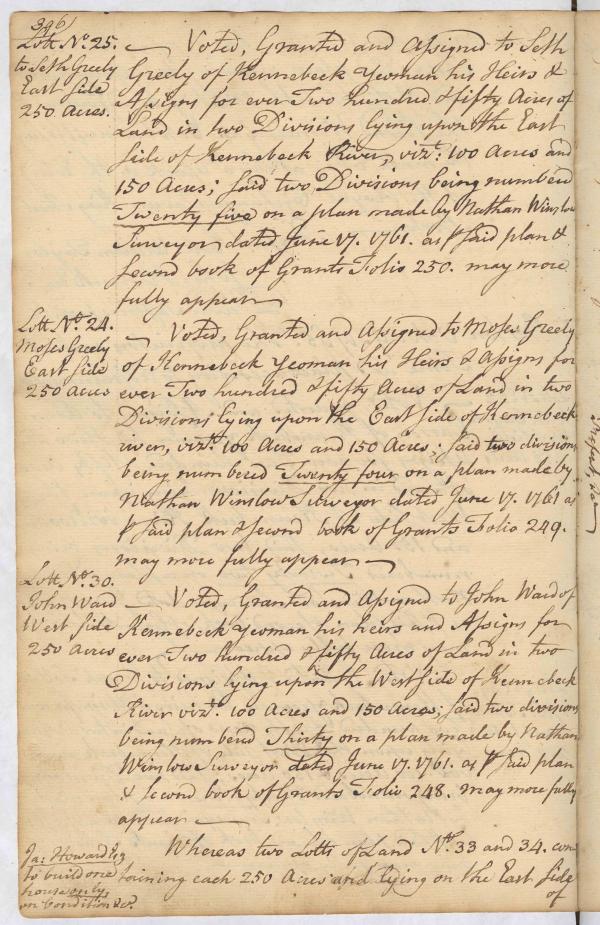 396
Lott No. 25.
to Seth Greely
East Side
250 Acres.
Voted, Granted and Assigned to Seth
Greely of Kennebeck Yeoman his Heirs &
Assigns for ever Two hundred & fifty Acres of
Land in two Divisions lying upon the East
Side of Kennebeck River, vizt: 100 Acres and
150 Acres; Said two Divisions being numbered
Twenty five on a plan made by Nathan Winslow
Surveyor dated June 17. 1761. as p Said plan &
Second book of Grants Folio 250. may more
fully appear
Lott No. 24.
Moses Greely
East Side
250 Acres
Voted, Granted and Assigned to Moses Greely
of Kennebeck Yeoman his Heirs & Assigns for
ever Two hundred & fifty Acres of Land in two
Divisions lying upon the East Side of Kennebeck
river, vizt. 100 Acres and 150 Acres; Said two divisions
being numbered Twenty four on a plan made by
Nathan Winslow Surveyor dated June 17. 1761 as
p Said plan & Second book of Grants Folio 249.
may more fully appear
Lott No. 30.
John Ward
West Side
250 Acres
Voted, Granted and Assigned to John Ward of
Kennebeck Yeoman his heirs and Assigns for
ever Two hundred & fifty Acres of Land in two
Divisions lying upon the West Side of Kennebeck
River vizt. 100 Acres and 150 Acres; Said two divisions
being numberd Thirty on a plan made by Nathan
Winslow Surveyor dated June 17. 1761. as p Said plan
& Second book of Grants Folio 248. may more fully
appear
Ja: Howard Esq
to build one
house only,
on Condition &c.
Whereas two Lotts of Land Nos. 33 and 34. con
taining each 250 Acres and lying on the East Side
of